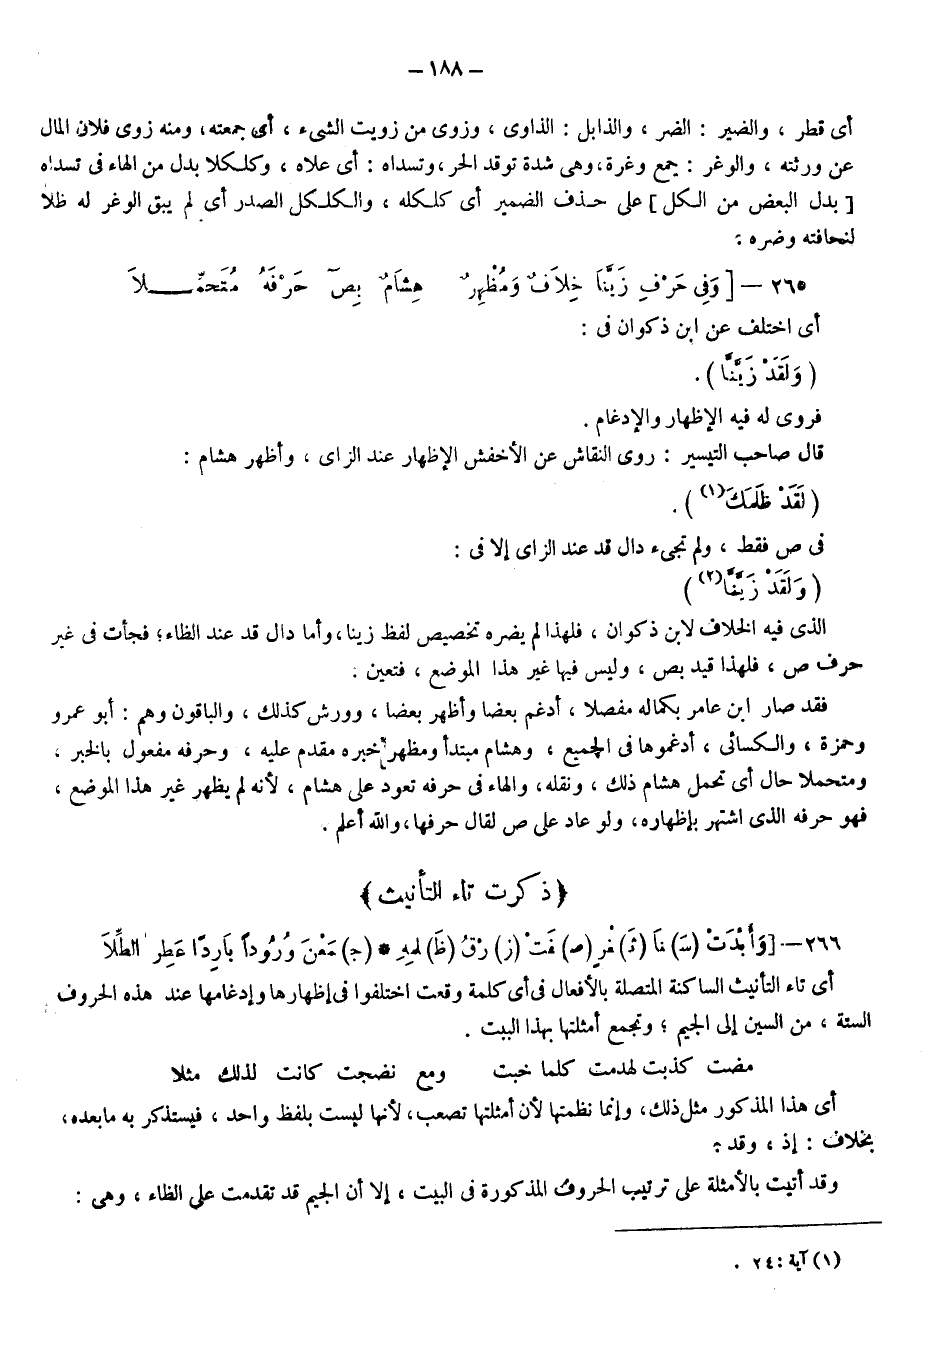 – ١٨٨ –
أى قطر ، والضير : الضر ، والذابل : الذاوى ، وزوى من زويت الشىء ، أى جمعته، ومنه زوى فلان المال
عن ورثته ، والوغر : جمع وغرة،وهى شدة توقد الحر،وتسداه : أى علاه ، وكلكلا بدل من الهاء فى تسداه
[ بدل البعض من الكل ] على حذف الضمير أى كلكله ، والكلكل الصدر أى لم يبق الوغر له ظلا
لنحافته وضره :
٢٦٥ – [ وَفِى حَرْفِ زَيَّنَّا خِلاَفٌ وَمُظْهِرٌ هِشَامٌ بِصَ حَرْفَهُ مُتَحَمِّــلاَ
أى اختلف عن ابن ذكوان فى :
( وَلَقَدْ زَيَّنَّا ) .
فروى له فيه الإظهار والإدغام .
قال صاحب التيسير : روى النقاش عن الأخفش الإظهار عند الزاى ، وأظهر هشام :
( لَقَدْ ظَلَمَكَ(١) ) .
فى ص فقط ، ولم تجىء دال قد عند الزاى إلا فى :
( وَلَقَدْ زَيَّنَّا(٢) )
الذى فيه الخلاف لابن ذكوان ، فلهذا لم يضره تخصيص لفظ زينا،وأما دال قد عند الظاء؛ فجأت فى غير
حرف ص ، فلهذا قيد بص ، وليس فيها غير هذا الموضع ، فتعين .
فقد صار ابن عامر بكماله مفصلا ، أدغم بعضا وأظهر بعضا ، وورش كذلك ، والباقون وهم : أبو عمرو
وحمزة ، والكسائى ، أدغموها فى الجميع ، وهشام مبتدأ ومظهر خبره مقدم عليه ، وحرفه مفعول بالخبر ،
ومتحملا حال أى تحمل هشام ذلك ، ونقله، والهاء فى حرفه تعود على هشام ، لأنه لم يظهر غير هذا الموضع ،
فهو حرفه الذى اشتهر بإظهاره، ولو عاد على ص لقال حرفها،والله أعلم .
﴿ ذكرت تاء التأنيث ﴾
٢٦٦–[وَأَبْدَتْ (سَـ)ـنَا (ثَـ)ـغْرٍ (صَـ)ـفَتْ (ز)رْقُ (ظَ)لمِهِ * (جـ)مَعْنَ وُرُوداً بَارِدًا عَطِرَ الطِّلاَ
أى تاء التأنيث الساكنة المتصلة بالأفعال فى أى كلمة وقعت اختلفوا فى إظهارها وإدغامها عند هذه الحروف
الستة ، من السين إلى الجيم ؛ وتجمع أمثلتها بهذا البيت .
مضت كذبت لهدمت كلما خبت ومع نضجت كانت لذلك مثلا
أى هذا المذكور مثل ذلك، وإنما نظمتها لأن أمثلتها تصعب، لأنها ليست بلفظ واحد ، فيستذكر به مابعده،
بخلاف : إذ ، وقد :
وقد أتيت بالأمثلة على ترتيب الحروف المذكورة فى البيت ، إلا أن الجيم قد تقدمت على الظاء ، وهى :
(١) آية : ٢٤ .